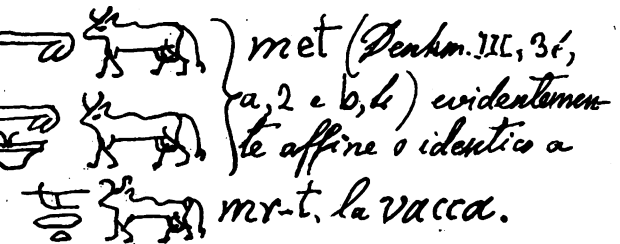 met (Denkm. III, 31,
a, 2 e b, 4) evidentemen-
te affine o identico a
mr-t, la vacca.